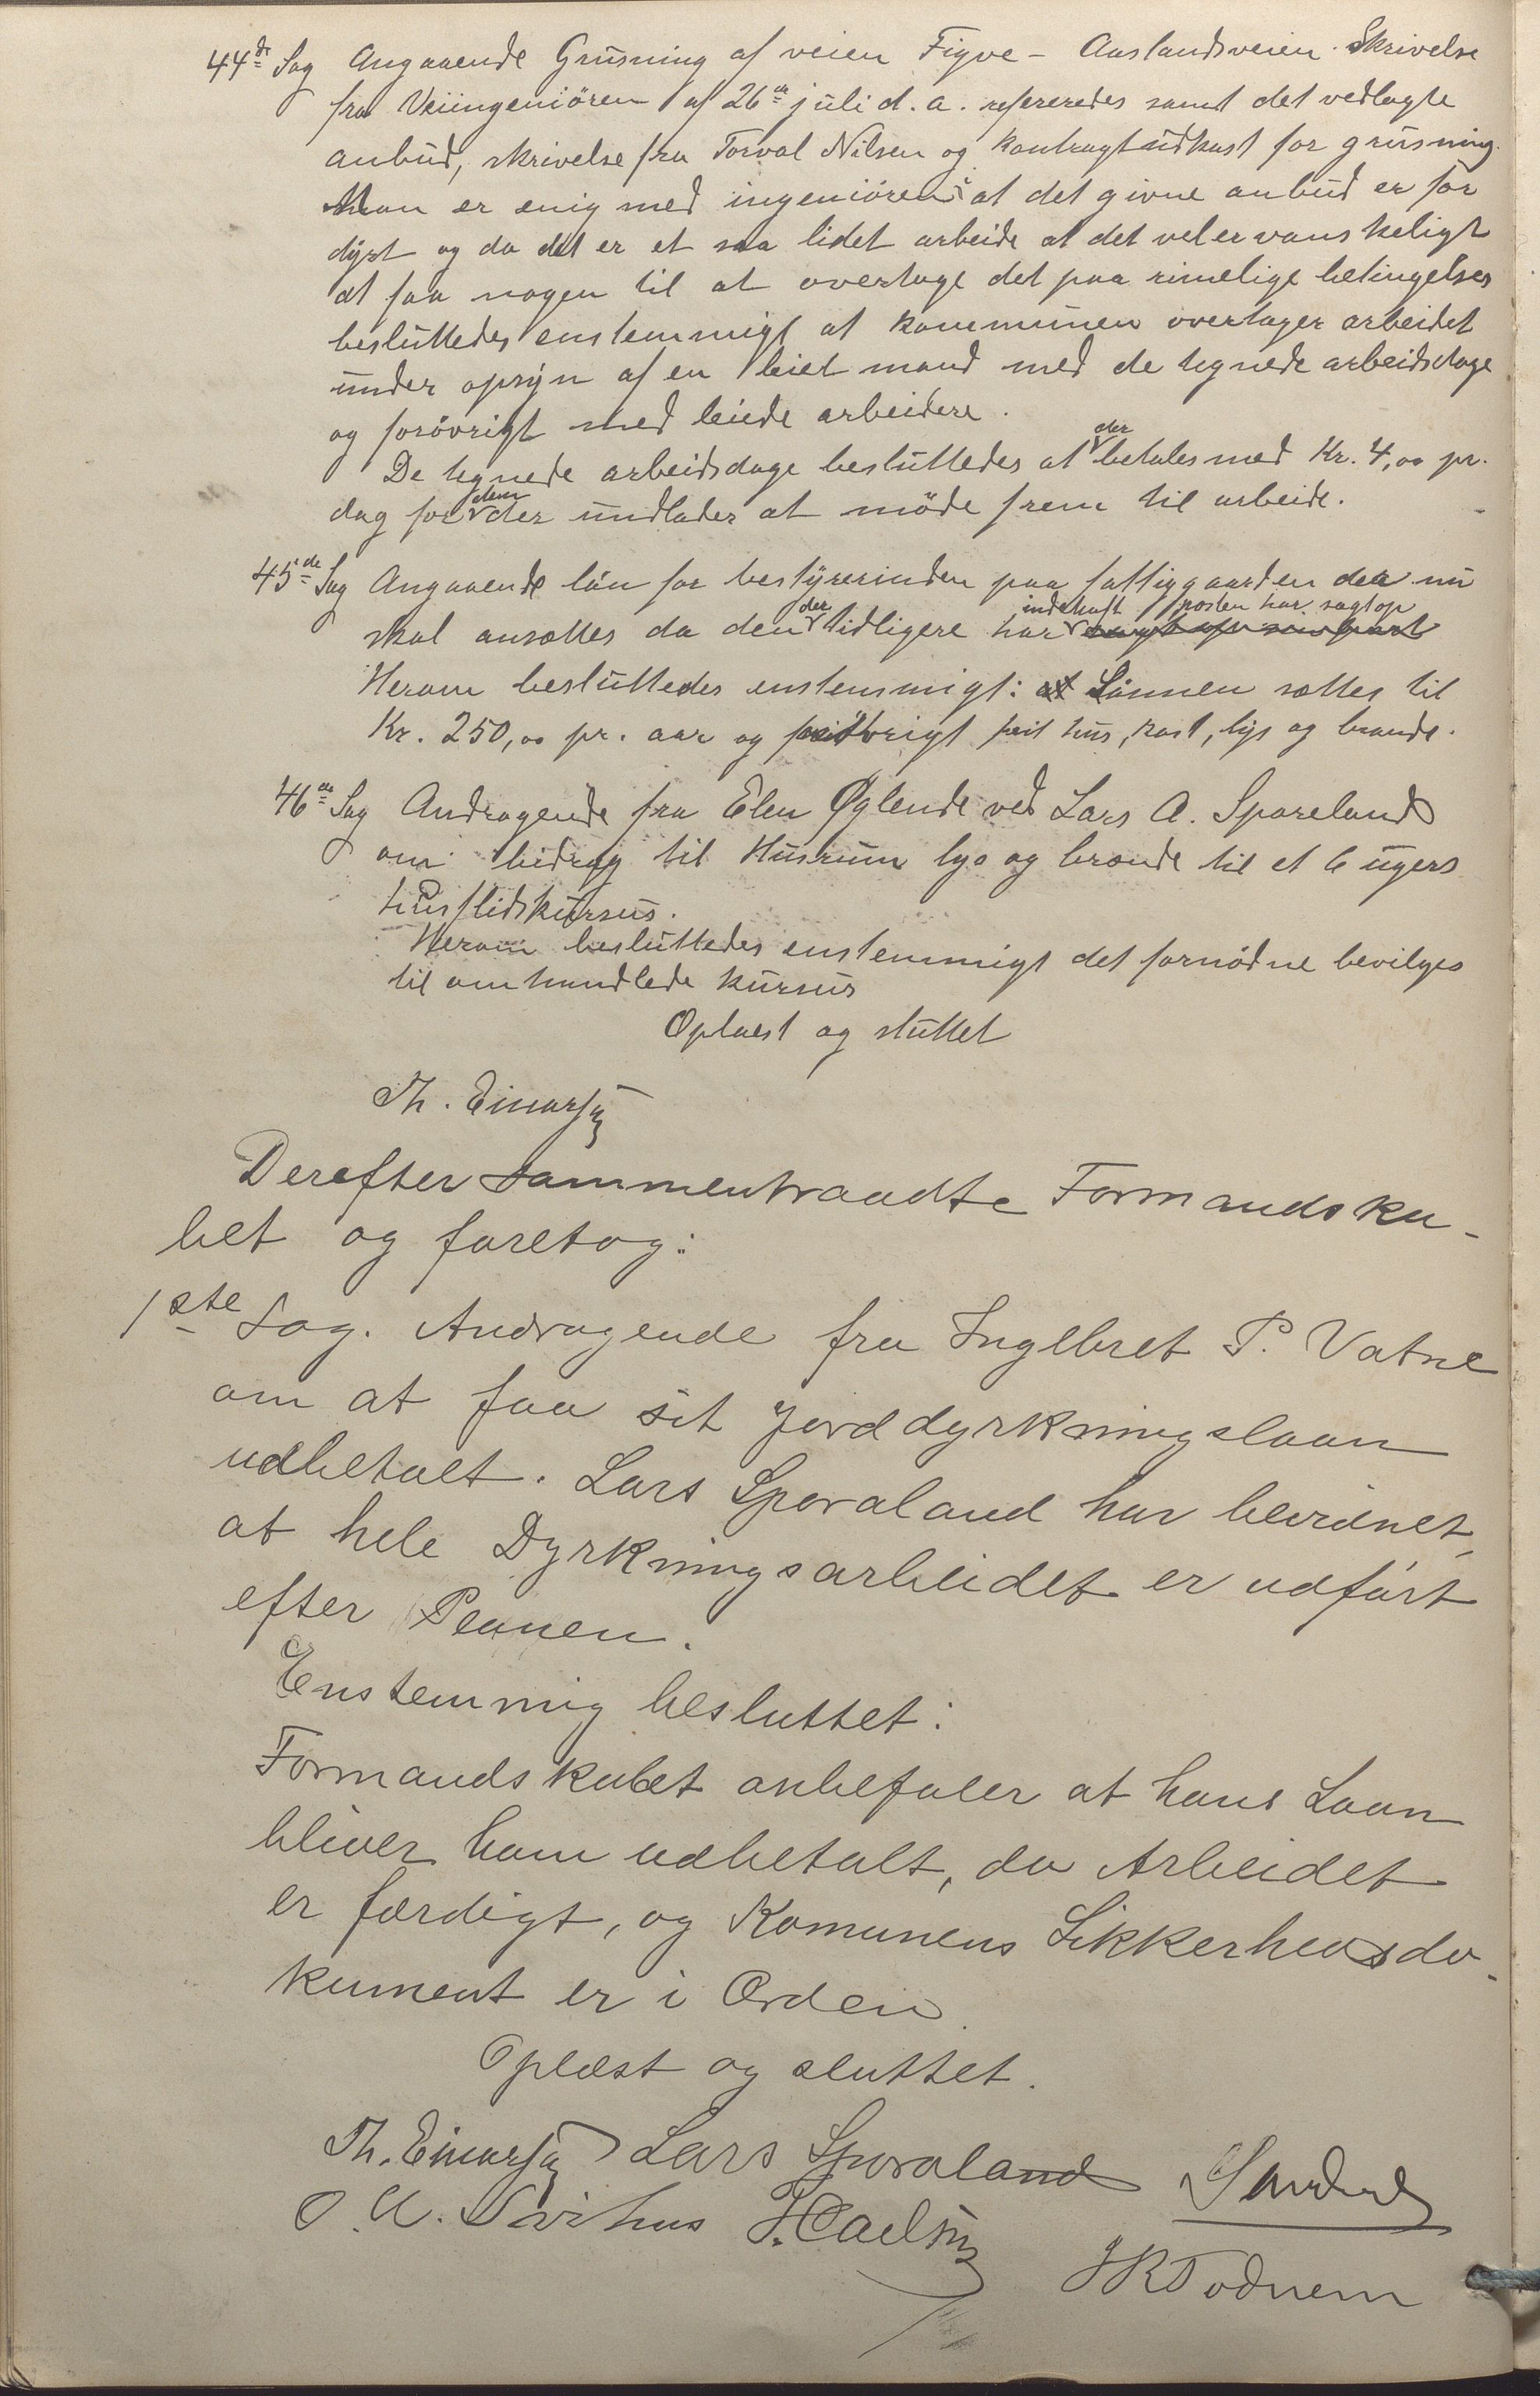 44de Sag Angaaende Grusning af veien Figve - Aaslandsveien. Skrivelse
fra Veiingeniören af 26de juli d. a. refereredes samt det vedlagte
anbud, skrivelse fra Torval Nilsen og Kontragtudkast for grusning.
Man er enig med ingeniören i at det givne anbud er for
dyrt og da det er et saa lidet arbeide at det vel er vanskeligt
at faa nogen til at overtage det paa rimelige betingelser
besluttedes enstemmigt at kommunen overtager arbeidet
under opsyn af en leiet mand med de tegnede arbeidsdage
og forövrigt med leiede arbeidere.
De tegnede arbeidsdage besluttedes at der betales med Kr. 4,00 pr.
dag for dem der undlader at möde frem til arbeide.
45de Sag Angaaende lön for bestyrerinden paa fattiggaarden der nu
skal ansættes da den der tidligere har indehaft posten har sagt op
Herom besluttedes enstemmigt: at Lönnen sættes til
Kr. 250,00 pr. aar og forövrigt frit hus, kost, lys og brænde.
46de Sag Andragende fra Elen Øglende ved Lars A. Sporeland
om bidrag til Husrum lys og brænde til et 6 ugers
husflidskursus.
Herom besluttedes enstemmigt det fornödne bevilges
til omhandlede kursus
Oplæst og sluttet
Th. Einarsen
Derefter sammentraadte Formandska-
bet og foretog:
1ste Sag. Andragende fra Ingebret P. Vatne
om at faa sit Jorddyrkningslaan
udbetalt. Lars Sporaland har bevidnet,
at hele Dyrkningsarbeidet er udført
efter Planen.
Enstemmig besluttet:
Formandskabet anbefaler at hans Laan
bliver ham udbetalt, da Arbeidet
er færdigt, og Komunens Sikkerhedsdo-
kument er i Orden.
Oplæst og sluttet.
Th. Einarsen Lars Sporaland
O. A. Svihus
J R Todnem